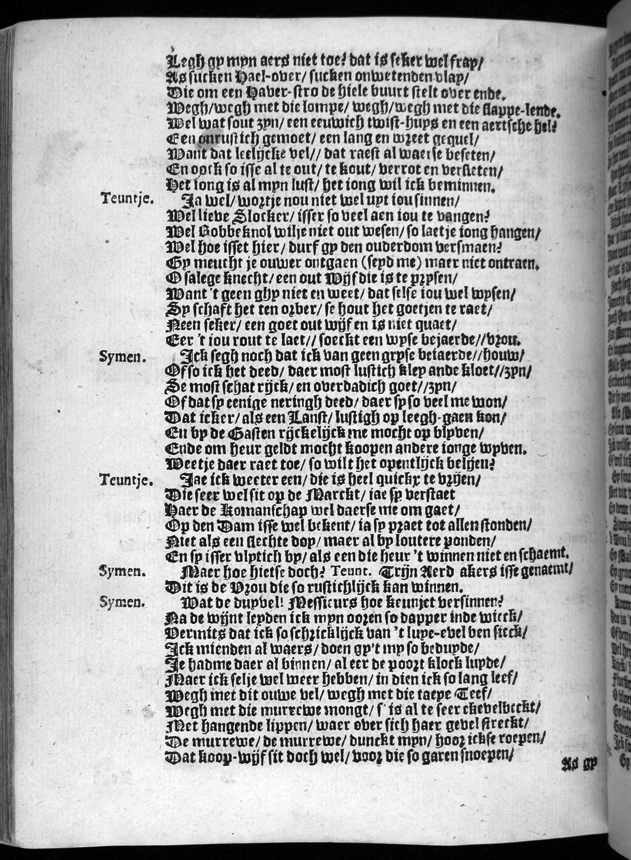 Legh gy myn aers niet toe? dat is seker wel fray/
As sucken Hael-over/ sucken onwetenden vlay/
Die om een Haver-stro de hiele buurt stelt over ende.
Wegh/wegh met die lompe/ wegh/wegh met die flappe-lende.
Wel wat sout zyn/ een eeuwich twist-huys en een aertsche hel?
Een onrustich gemoet/ een lang en wreet gequel/
Want dat leelijcke vel// dat raest al waerse beseten/
En oock so isse al te out/ te kout/ verrot en versleten/
Het iong is al myn lust/ het iong wil ick beminnen.
Teuntje. Ja wel/ wortje nou niet wel uyt iou sinnen/
Wel lieve Slocker/ isser so veel aen iou te vangen?
Wel Bobbeknol wilje niet out wesen/ so laetje iong hangen/
Wel hoe isset hier/ durf gy den ouderdom versmaen?
Gy meucht je ouwer ontgaen (seyd me) maer niet ontraen.
O salege knecht/ een out Wijf die is te prysen/
Want 't geen ghy niet en weet/ dat selse iou wel wysen/
Sy schaft het ten orber/ se hout het goetjen te raet/
Neen seker/ een goet out wijf en is niet quaet/
Eer 't iou rout te laet// soeckt een wyse bejaerde//vrou.
Symen. Ick segh noch dat ick van geen gryse beiaerde//houw/
Of so ick het deed/ daer most lustich kley ande kloet//zyn/
Se most schat rijck/ en overdadich goet//zyn/
Of dat sy eenige neringh deed/ daer sy so veel me won/
Dat icker/ als een Lanst/ lustigh op leegh-gaen kon/
En by de Gasten rijckelijck me mocht op blyven/
Ende om heur geldt mocht koopen andere ionge wyven.
Weetje daer raet toe/ so wilt het opentlijck belijen?
Teuntje. Jae ick weeter een/ die is heel quickx te vrijen/
Die seer wel sit op de Marckt/ iae sy verstaet
Haer de Komanschap wel daerse me om gaet/
Op den Dam isse wel bekent/ ia sy praet tot allen stonden/
Niet als een slechte doy/ maer al by loutere ponden/
En sy isser vlytich by/ als een die heur 't winnen niet en schaemt.
Symen. Maer hoe hietse doch? Teunt. Trijn Aerd akers isse genaemt/
Dit is de Vrou die so rustichlijck kan winnen.
Symen. Wat de duyvel! Messieurs hoe keunjet versinnen?
Na de wijnt leyden ick myn ooren so dapper inde wieck/
Vermits dat ick so schricklijck van 't luye-evel ben sieck/
Ick mienden al waers/ doen gy't my so beduyde/
Je hadme daer al binnen/ al eer de poort klock luyde/
Maer ick selje wel weer hebben/ in dien ick so lang leef/
Wegh met dit ouwe vel/ wegh met die taeye Teef/
Wegh met die murrewe mongt/ s' is al te seer ekevelbeckt/
Met hangende lippen/ waer over sich haer gevel streckt/
De murrewe/ de murrewe/ dunckt myn/ hoor ickse roepen/
Dat koop-wijf sit doch wel/ voor die so garen snoepen/
As gy